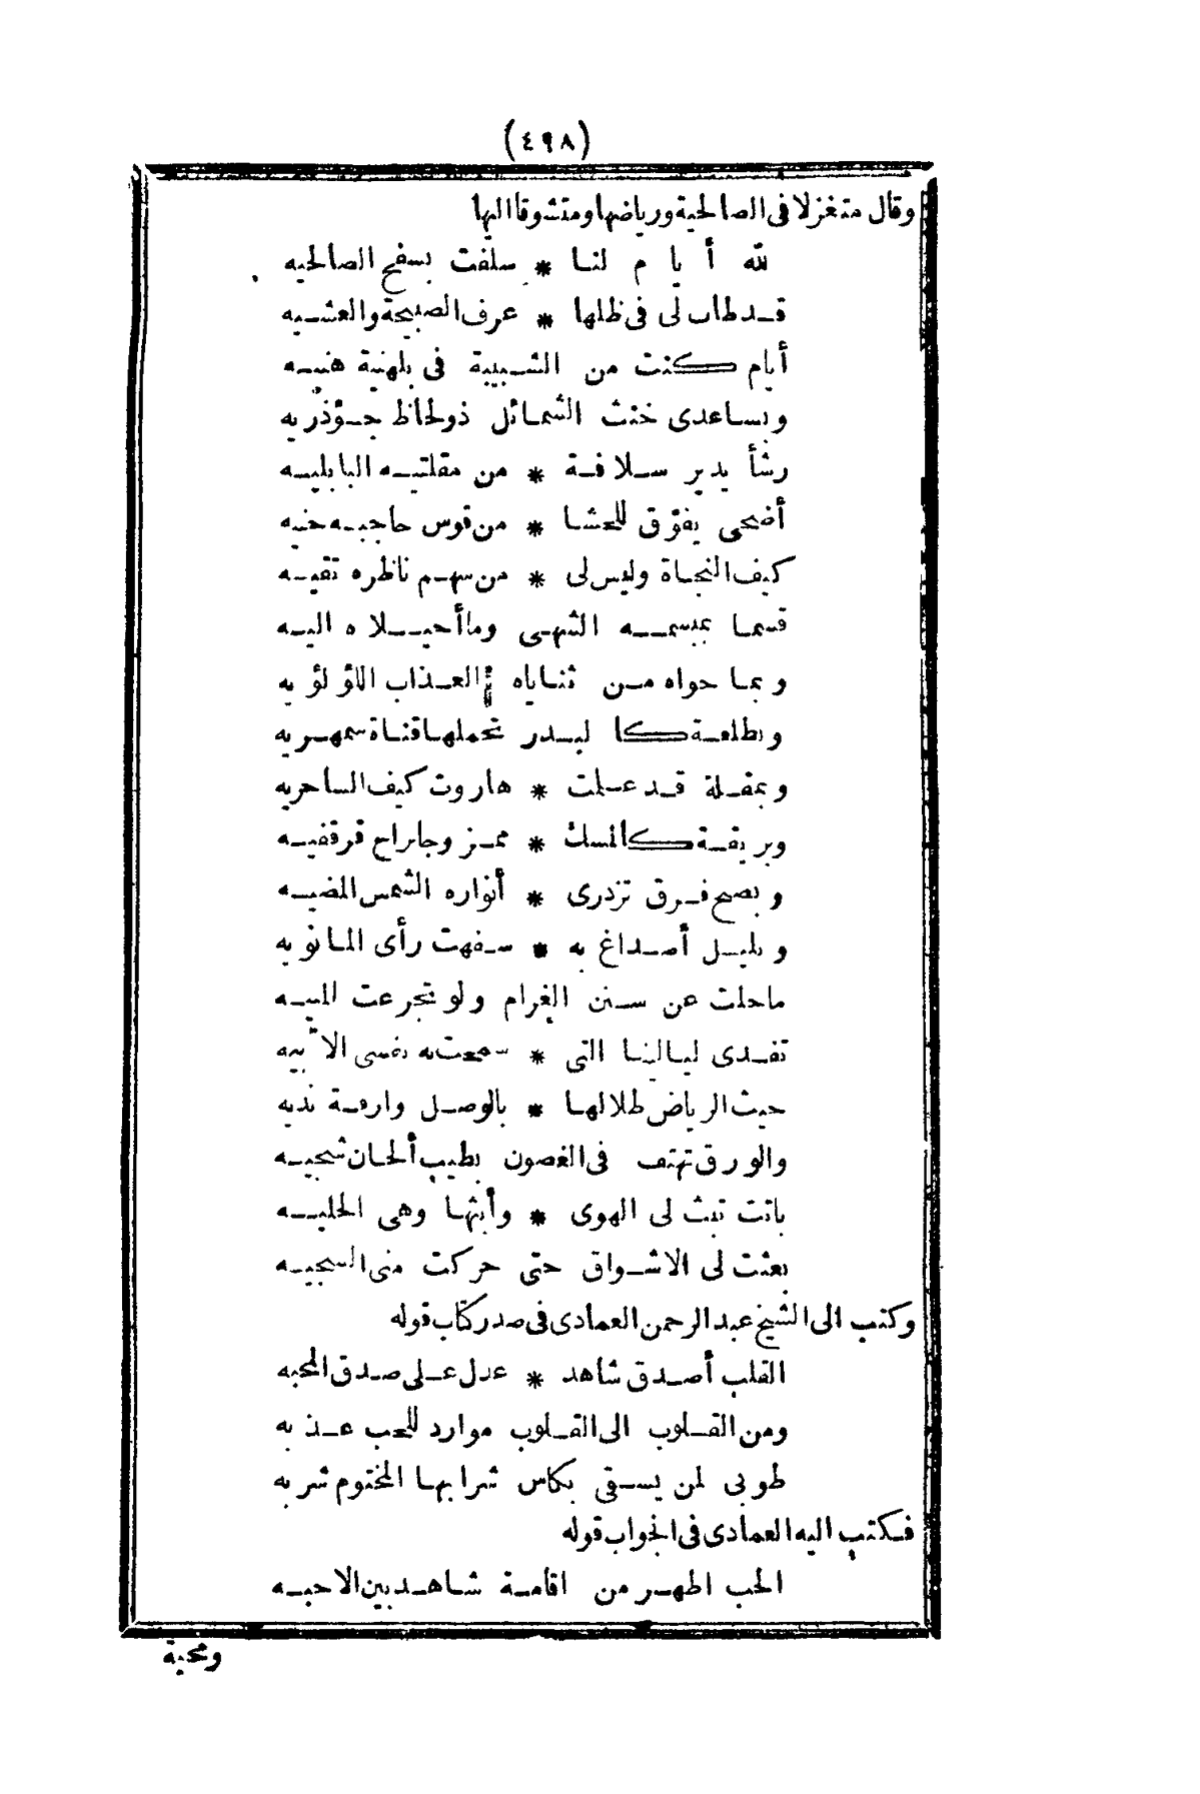 (٤٩٨)
وقال متغزلا فى الصالحية ورياضها ومتشوقا اليها
لله أيام لنا * سلفت بسفح الصالحيه
قد طاب لى فى ظلها * عرف الصبيحة والعشيه
أيام كنت من الشبيبة فى بلهنية هنيه
ويساعدى خنث الشمائل ذو لحاظ جؤذريه
رشأ يدير سلافة * من مقلتيه البابليه
أضحى يفوّق للحشا * من قوس حاجبه حنيه
كيف النجاة وليس لى * من سهم ناظره تقيه
قسما بمبسمه الشهى وما أحيلاه اليه
وبما حواه من ثناياه العذاب اللؤلؤيه
وبطلعة كالبدر تحملها قناة سمهريه
وبمقلة قد علمت * هاروت كيف الساحريه
وبريقة كالمسك * ممزوجا براح قرقفيه
وبصبح فرق تزدرى * أنواره الشمس المضيه
وبليل أصداغ به * سفهت رأى المانويه
ماحلت عن سنن الغرام ولو تجرعت المنيه
تفدى ليالينا التى * سمحت به نفسى الأبيه
حيث الرياض ظلالها * بالوصل وارفة نديه
والورق تهتف فى الغصون بطيب ألحان شجيه
باتت تبث لى الهوى * وأبثها وهى الخليه
بعثت لى الاشواق حتى حركت منى السجيه
وكتب الى الشيخ عبد الرحمن العمادى فى صدر كتاب قوله
القلب أصدق شاهد * عدل على صدق المحبه
ومن القلوب الى القلوب موارد للحب عذبه
طوبى لمن يسقى بكاس شرابها المختوم شربه
فكتب اليه العمادى فى الجواب قوله
الحب اظهر من اقامة شاهد بين الاحبه
ومحبة